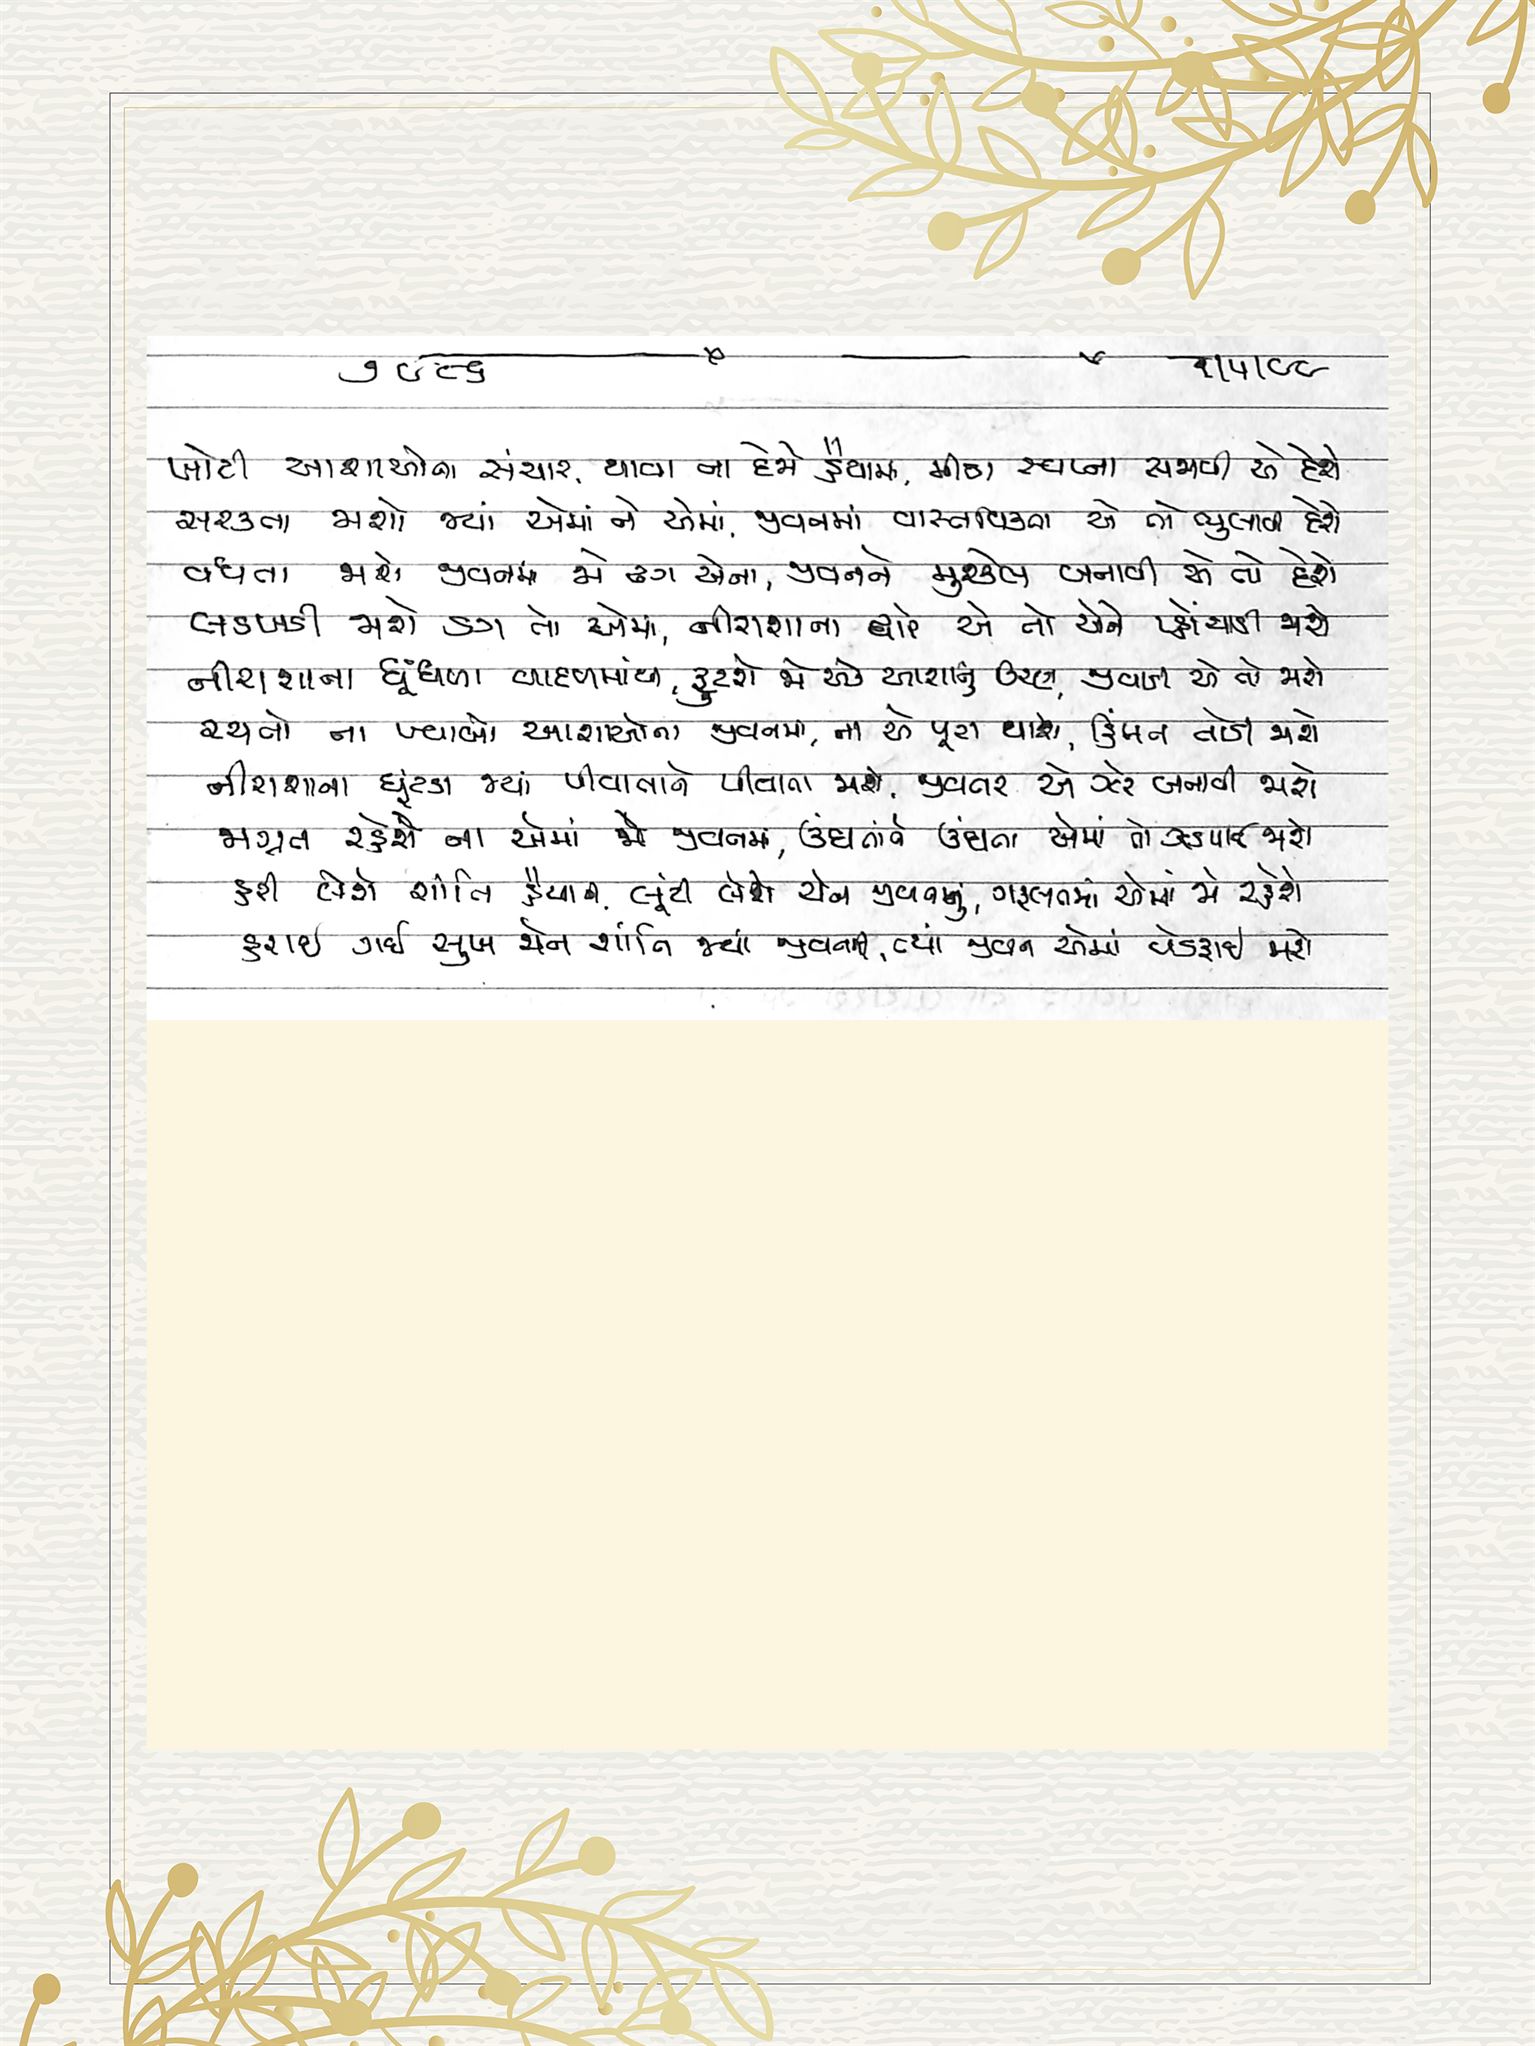 ૭૯૯૬ ૧/૫/૯૯
ખોટી આશાઓના સંચાર, થાવા ના દેજે હૈયામાં, મીઠા સ્વપ્ના સજાવી એ દેશે
સરકતા જાશો જ્યાં એમાં ને એમાં, જીવનમાં વાસ્તવિકતા એ તો ભુલાવી દેશે
વધતા જાશે જીવનમાં જે ડગ એના, જીવનને મુશ્કેલ બનાવી એ તો દેશે
લડખડી જાશે ડગ તો એમાં, નીરાશાના દ્વારે એ તો એને પ્હોંચાડી જાશે
નીરાશાના ધૂંધળા વાદળમાંથી, ફુટશે જે એક આશાનું કિરણ, જીવાડી એ તો જાશે
રચજો ના ખ્યાલો આશાઓના જીવનમાં, ના એ પૂરા થાશે, હિંમત તોડી જાશે
નીરાશાના ઘૂંટડા જ્યાં પીવાતાને પીવાતા જાશે, જીવતર એ ઝેર બનાવી જાશે
જાગ્રત રહેશે ના એમાં જો જીવનમાં, ઉંઘતાંને ઉંઘતા એમાં તો ઝડપાઈ જાશે
હરી લેશે શાંતિ હૈયાની, લૂંટી લેશે ચેન જીવનનું, ગફલતમાં એમાં જે રહેશે
હરાઈ ગઈ સુખ ચેન શાંતિ જ્યાં જીવનની, ત્યાં જીવન એમાં વેડફાઈ જાશે